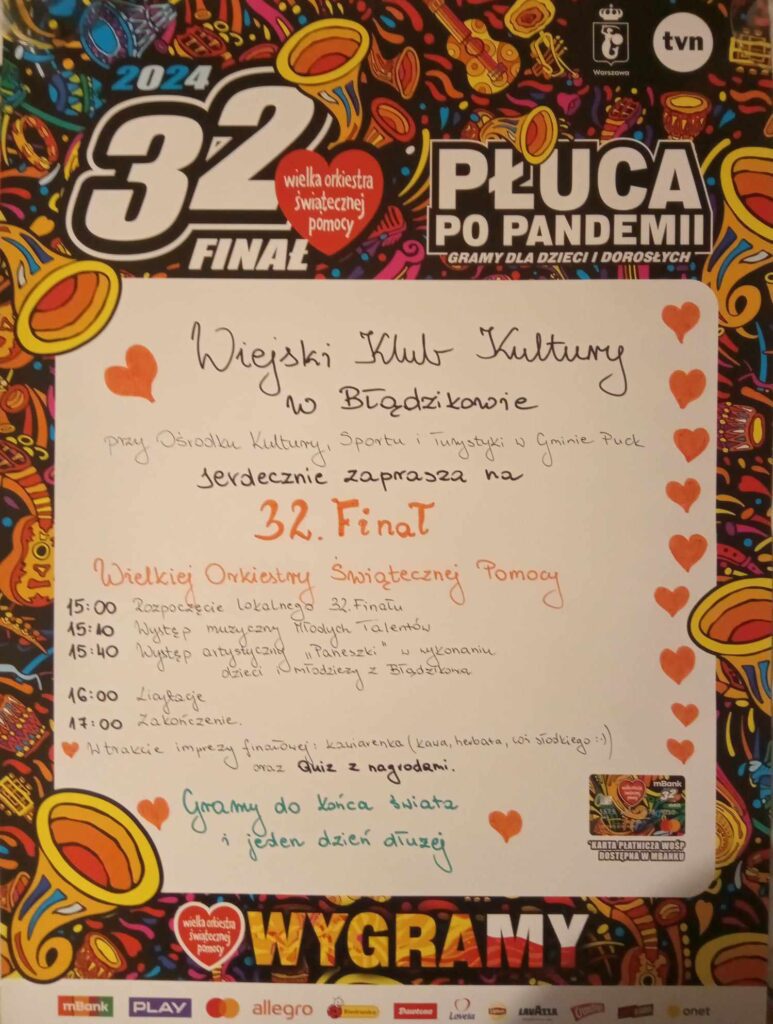 2024
32
FINAŁ
wielka orkiestra
świątecznej
pomocy
Warszawa
tvn
PŁUCA
PO PANDEMII
GRAMY DLA DZIECI I DOROSŁYCH
Wiejski Klub Kultury
w Błądzikowie
przy Ośrodku Kultury, Sportu i Turystyki w Gminie Puck
serdecznie zaprasza na
32. Finał
Wielkiej Orkiestry Świątecznej Pomocy
15:00 Rozpoczęcie lokalnego 32. Finału
15:10 Występ muzyczny Młodych Talentów
15:40 Występ artystyczny „Paneszki" w wykonaniu
dzieci i młodzieży z Błądzikowa
16:00 Licytacje
17:00 Zakończenie.
W trakcie imprezy finałowej: kawiarenka (kawa, herbata, coś słodkiego :-)
oraz Quiz z nagrodami.
Gramy do końca świata
i jeden dzień dłużej
mBank
*KARTA PŁATNICZA WOŚP
DOSTĘPNA W MBANKU
wielka orkiestra
świątecznej
pomocy
WYGRAMY
mBank PLAY allegro Biedronka Dawtona Lovela LAVAZZA onet